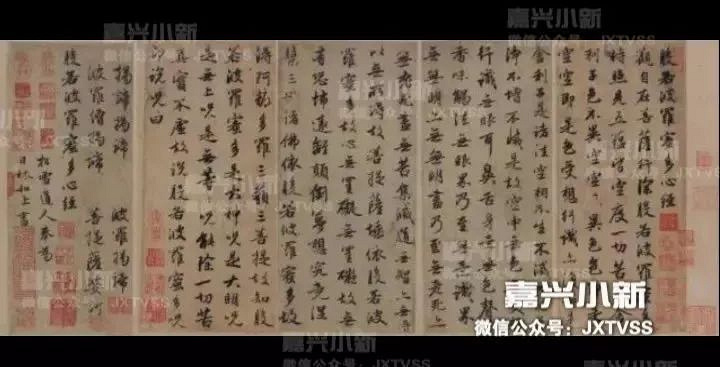 般若波羅蜜多心經
觀自在菩薩行深般若波羅蜜多
時照見五蘊皆空度一切苦厄舍
利子色不異空空不異色色即是
空空即是色受想行識亦
舍利子是諸法空相不生不滅
淨不增不減是故空中無色
行識無眼耳鼻舌身意無色聲
香味觸法無眼界乃至無意識界
無無明亦無無明盡乃至無老死亦
無老死盡無苦集滅道無智亦無得
以無所得故菩提薩埵依般若波
羅蜜多故心無罣礙無罣礙故無
有恐怖遠離顛倒夢想究竟涅
槃三世諸佛依般若波羅蜜多故
得阿耨多羅三藐三菩提故知般
若波羅蜜多是大神咒是大明咒
是無上咒是無等等咒能除一切苦
真實不虛故說般若波羅蜜多咒
即說咒曰
揭諦揭諦 波羅揭諦
波羅僧揭諦 菩提薩婆訶
般若波羅蜜多心經
松雪道人奉為
日林和上書
嘉兴小新
微信公众号：JXTVSS